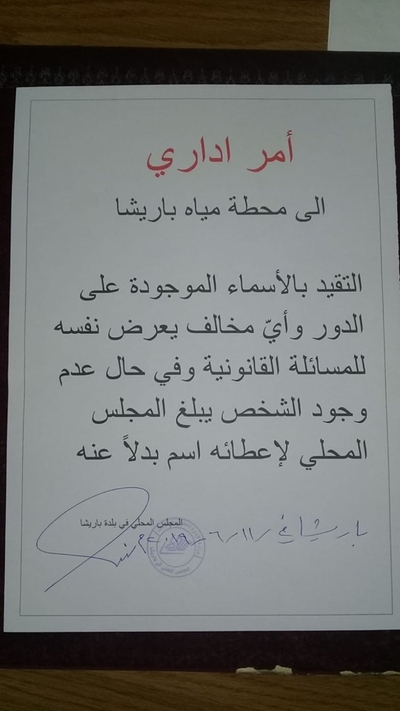 أمر اداري
الى محطة مياه باريشا
التقيد بالأسماء الموجودة على
الدور وأيّ مخالف يعرض نفسه
للمسائلة القانونية وفي حال عدم
وجود الشخص يبلغ المجلس
المحلي لإعطائه اسم بدلاً عنه
المجلس المحلي في بلدة باريشا
باريشا في ١١/٦/٢٠١٩ م